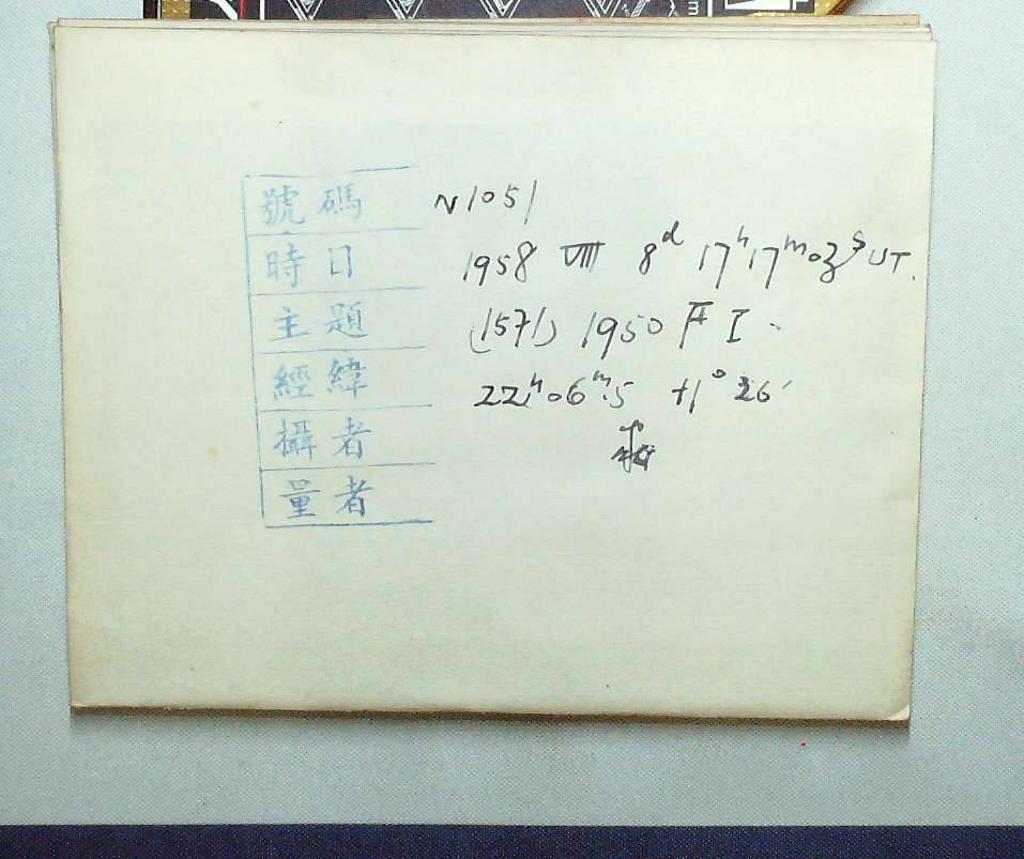 號碼 N1051
時日 1958 VIII 8d 17h17m03s UT.
主題 (1571) 1950 FI
經緯 22h06m.5 +1° 26′
攝者
量者